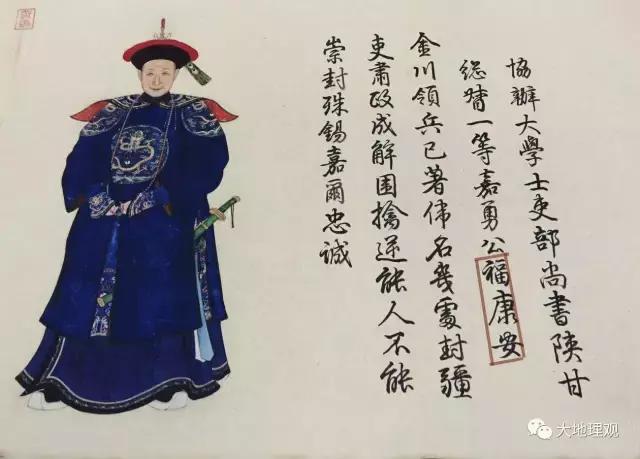 協辦大學士吏部尚書陝甘
總督一等嘉勇公福康安
金川領兵已著偉名幾處封疆
吏肅政成解圍擒逆能人不能
崇封殊錫嘉爾忠誠
大地理观